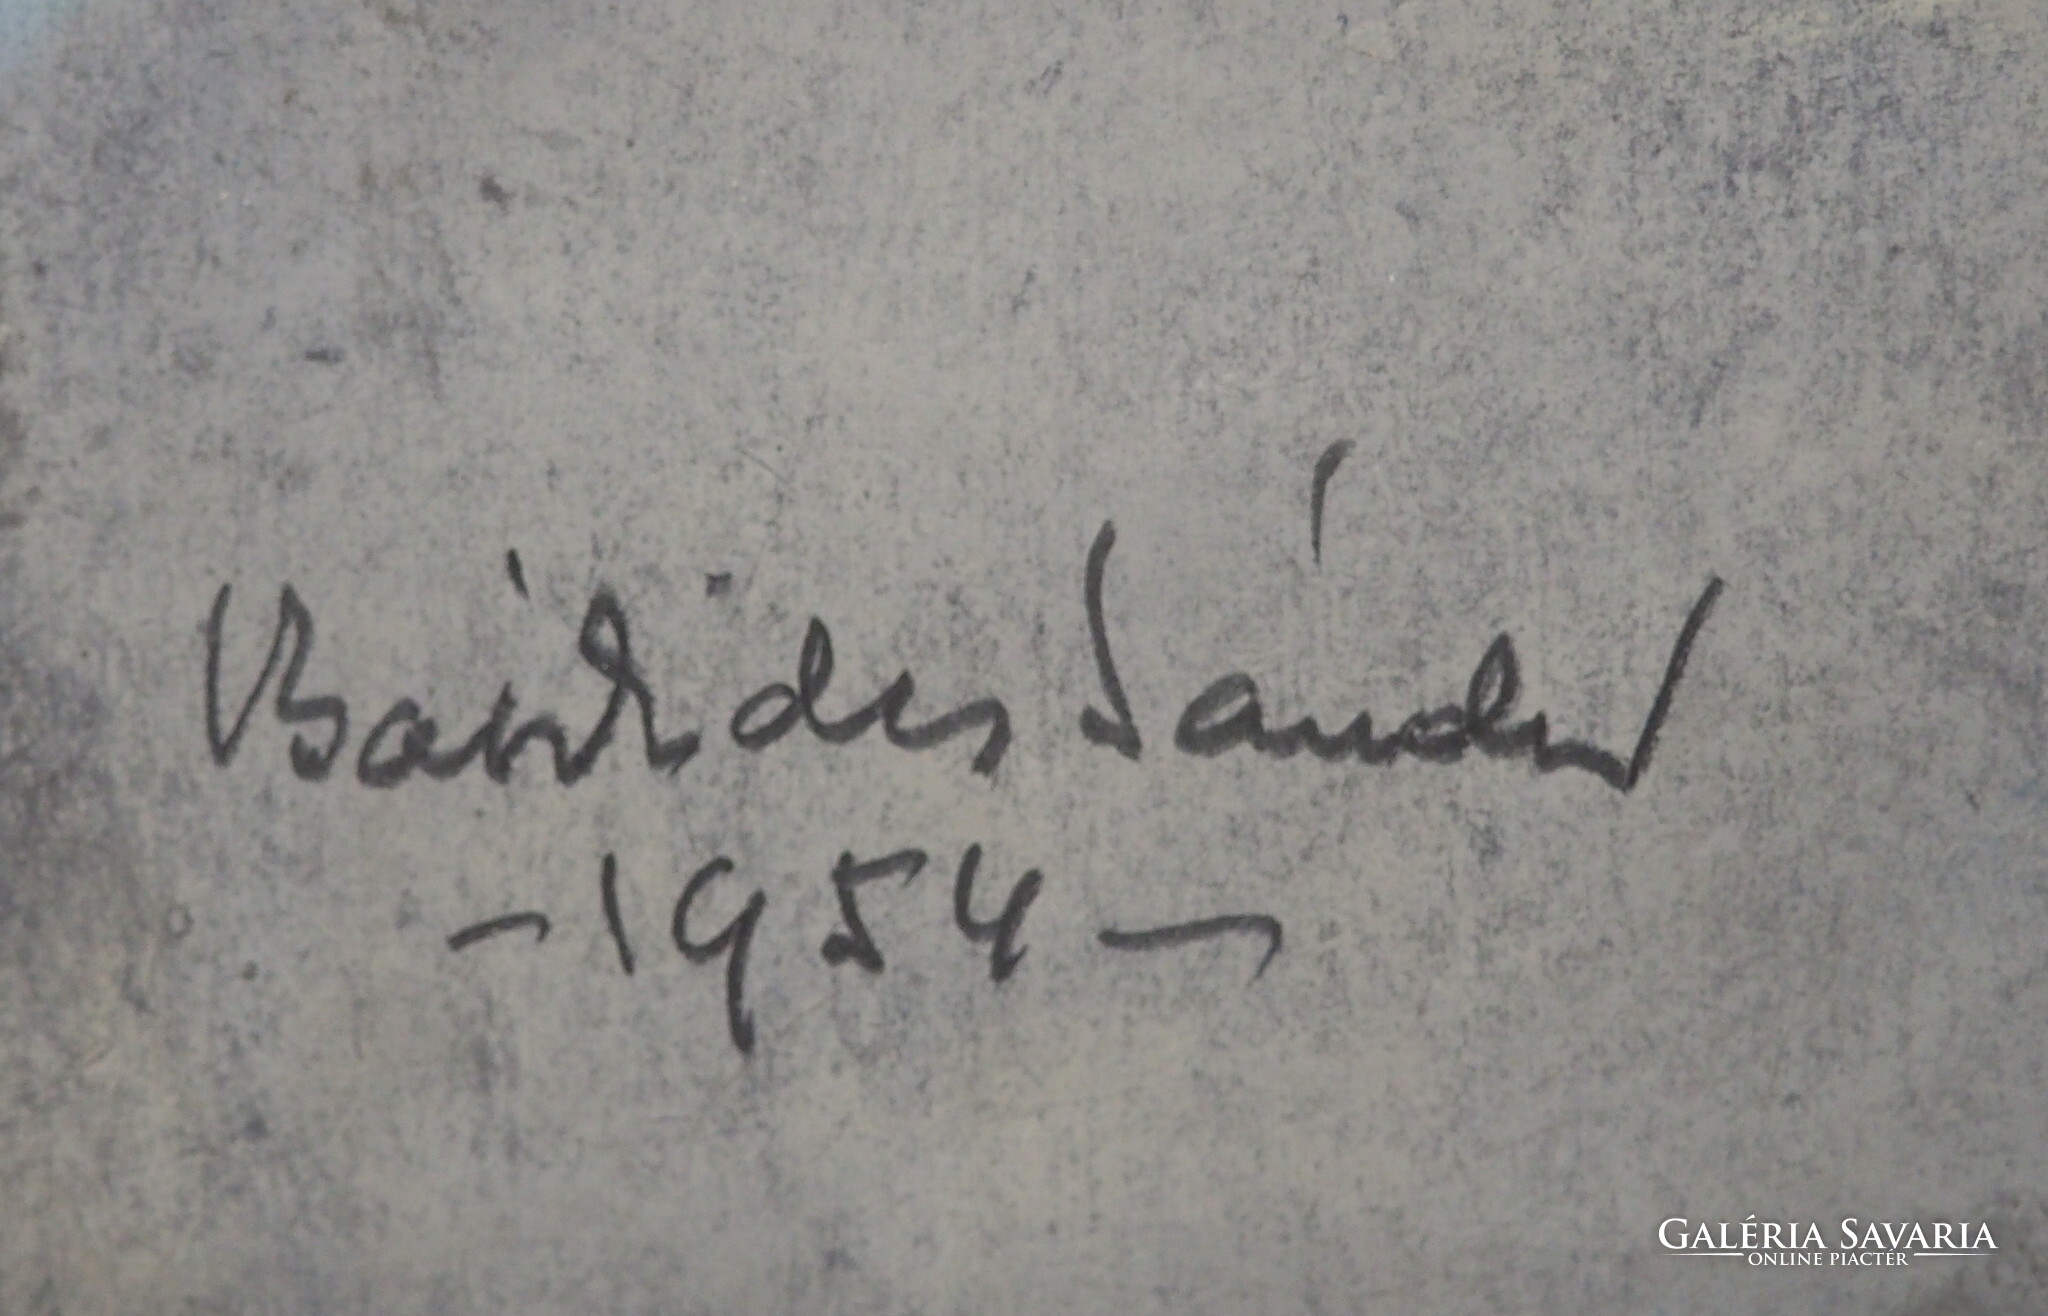 Bartides Sándor
-1954-
GALÉRIA SAVARIA
ONLINE PIACTÉR